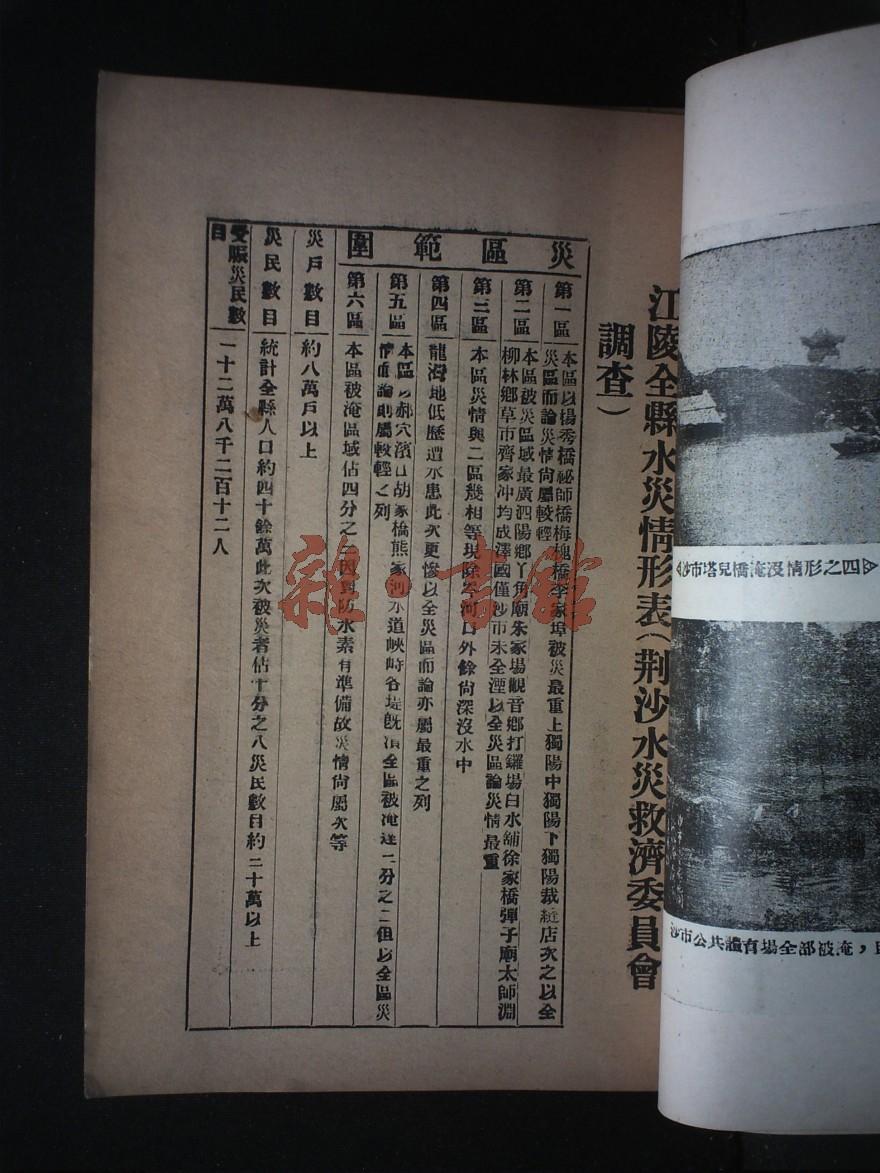 江陵全縣水災情形表(荆沙水災救濟委員會
調查)
災區範圍
第一區
本區以楊秀橋祕師橋梅槐橋李家埠被災最重上獨陽中獨陽下獨陽裁縫店次之以全
災區而論災情尙屬較輕
第二區
本區被災區域最廣泗陽鄉丫角廟朱家場觀音鄉打鑼場白水舖徐家橋彈子廟太師淵
柳林鄉草市齊家冲均成澤國僅沙市未全湮以全災區論災情最重
第三區
本區災情與二區幾相等現除岑河口外餘尙深沒水中
第四區
龍灣地低歷遭水患此次更慘以全災區而論亦屬最重之列
第五區
本區以郝穴濱口胡家橋熊家河水道峽峙各堤旣潰全區被淹達三分之二但以全區災
情而論則屬較輕之列
第六區
本區被淹區域佔四分之二因對防水素有準備故災情尙屬次等
災戶數目
約八萬戶以上
災民數目
統計全縣人口約四十餘萬此次被災者佔十分之八災民數目約二十萬以上
受賑災民數
目
一十二萬八千二百十二人
沙市塔兒橋淹沒情形之四
沙市公共體育場全部被淹,
雜·書館